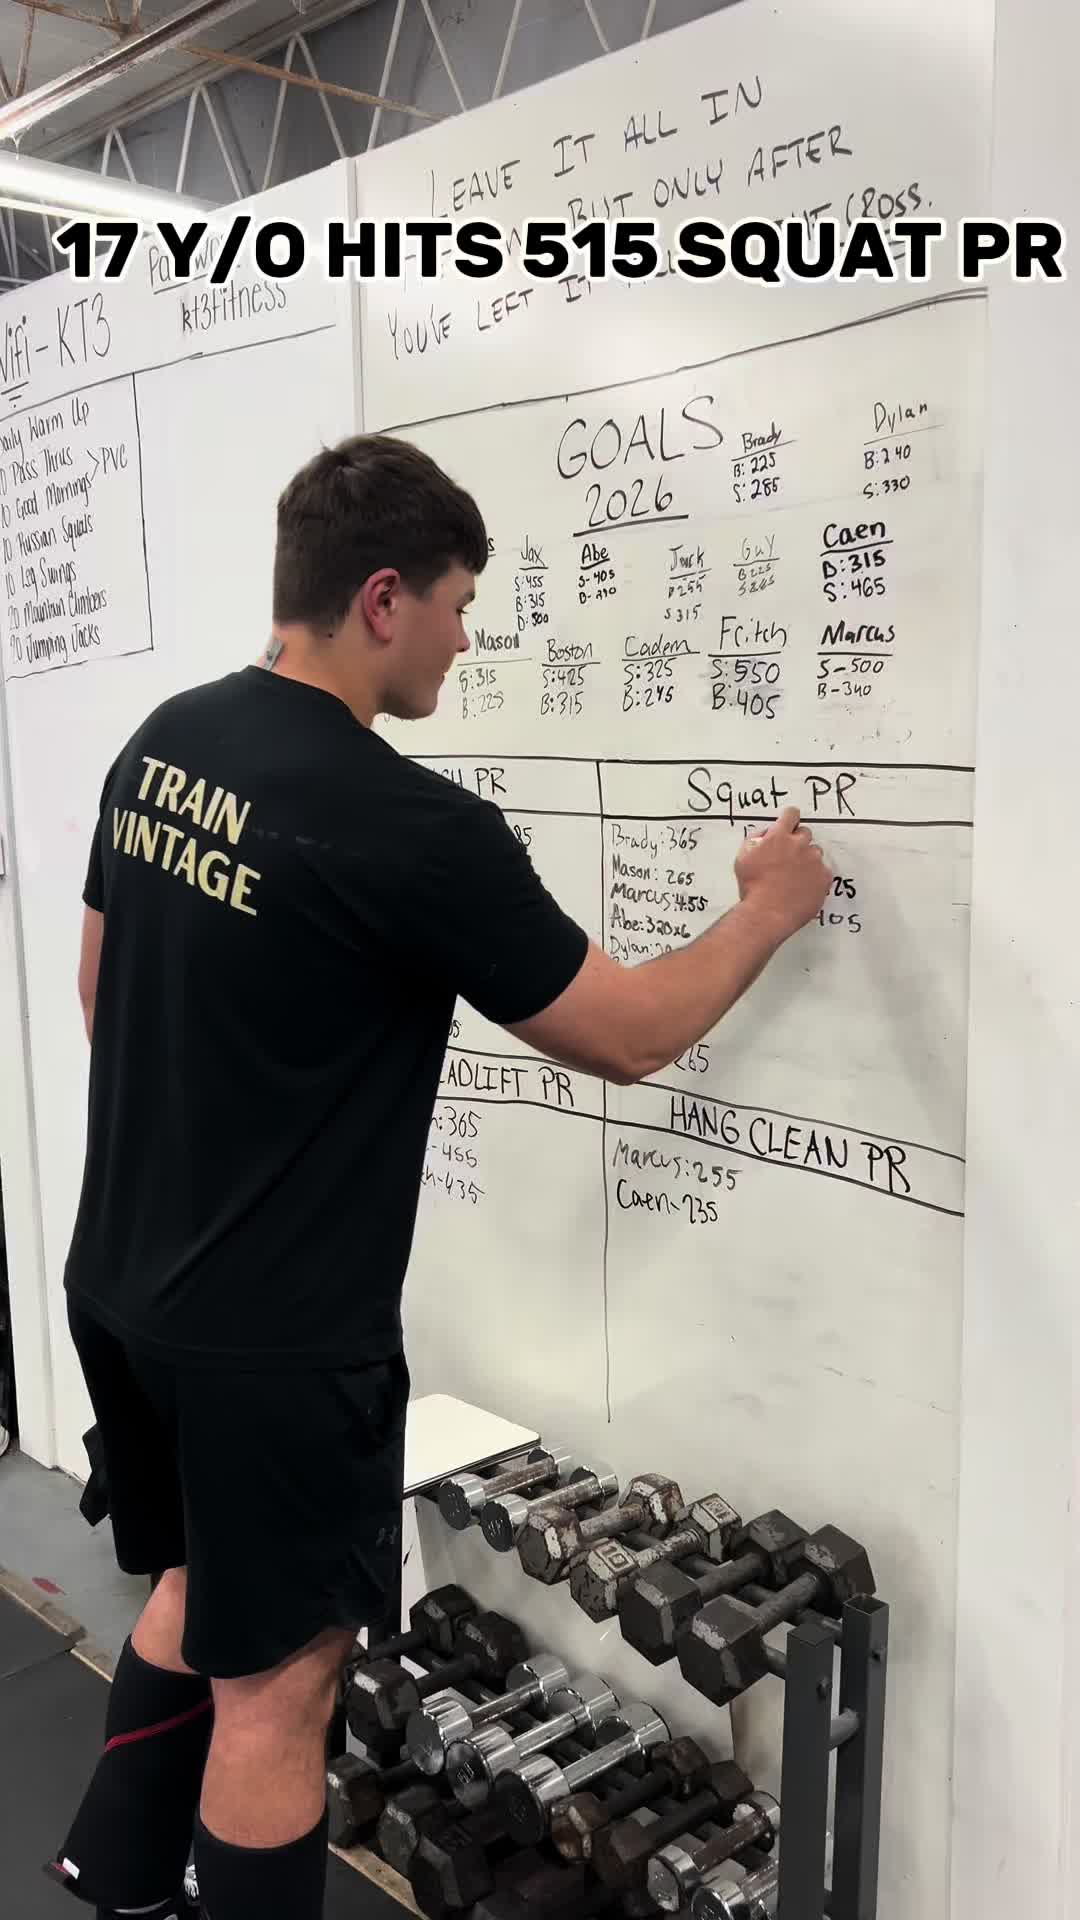 LEAVE IT ALL IN
BUT ONLY AFTER
CROSS.
YOU'VE LEFT IT
17 Y/O HITS 515 SQUAT PR
Wifi - KT3
kt3fitness
Daily Warm Up
Pass Thrus
10 Good Mornings
PVC
10 Russian Squats
10 Leg Swings
20 Mountain Climbers
Jumping Jacks
GOALS
2026
Brady
B: 225
S: 285
Dylan
B: 240
S: 330
Jax
S: 455
B: 315
D: 500
Abe
S- 405
B- 290
Jack
B 255
S 315
Guy
B 225
Caen
B: 315
S: 465
Mason
S: 315
B: 225
Boston
S: 425
B: 315
Cadem
S: 325
B: 245
Fritch
S: 550
B: 405
Marcus
S-500
B-340
PR
Squat PR
Brady: 365
Mason: 265
Marcus: 455
Abe: 320x6
Dylan:
25
405
265
ADLIFT PR
: 365
-455
-435
HANG CLEAN PR
Marcus: 255
Caen- 235
TRAIN
VINTAGE
10